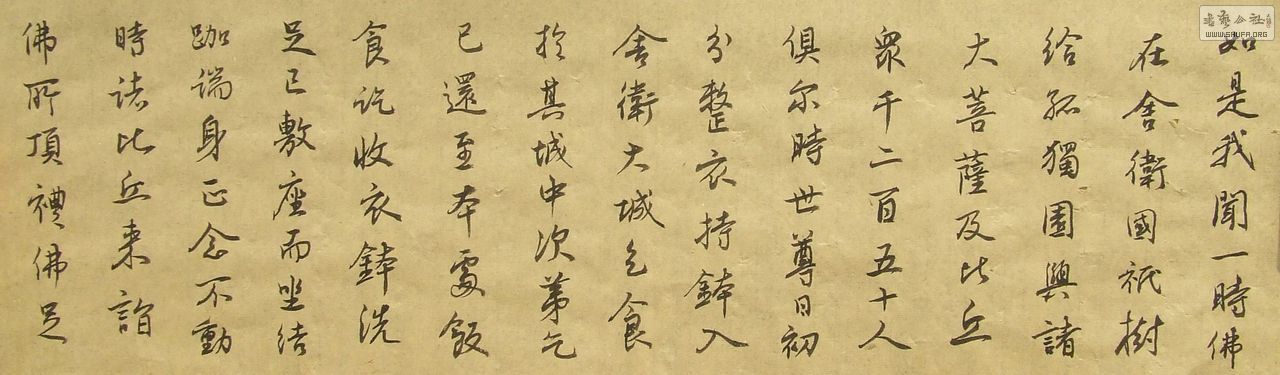 如是我聞一時佛
在舍衛國祇樹
給孤獨園與諸
大菩薩及比丘
衆千二百五十人
俱尔時世尊日初
分整衣持鉢入
舍衛大城乞食
於其城中次第乞
已還至本處飯
食訖收衣鉢洗
足已敷座而坐結
跏端身正念不動
時諸比丘来詣
佛所頂禮佛足
書法公社
WWW.SHUFA.ORG